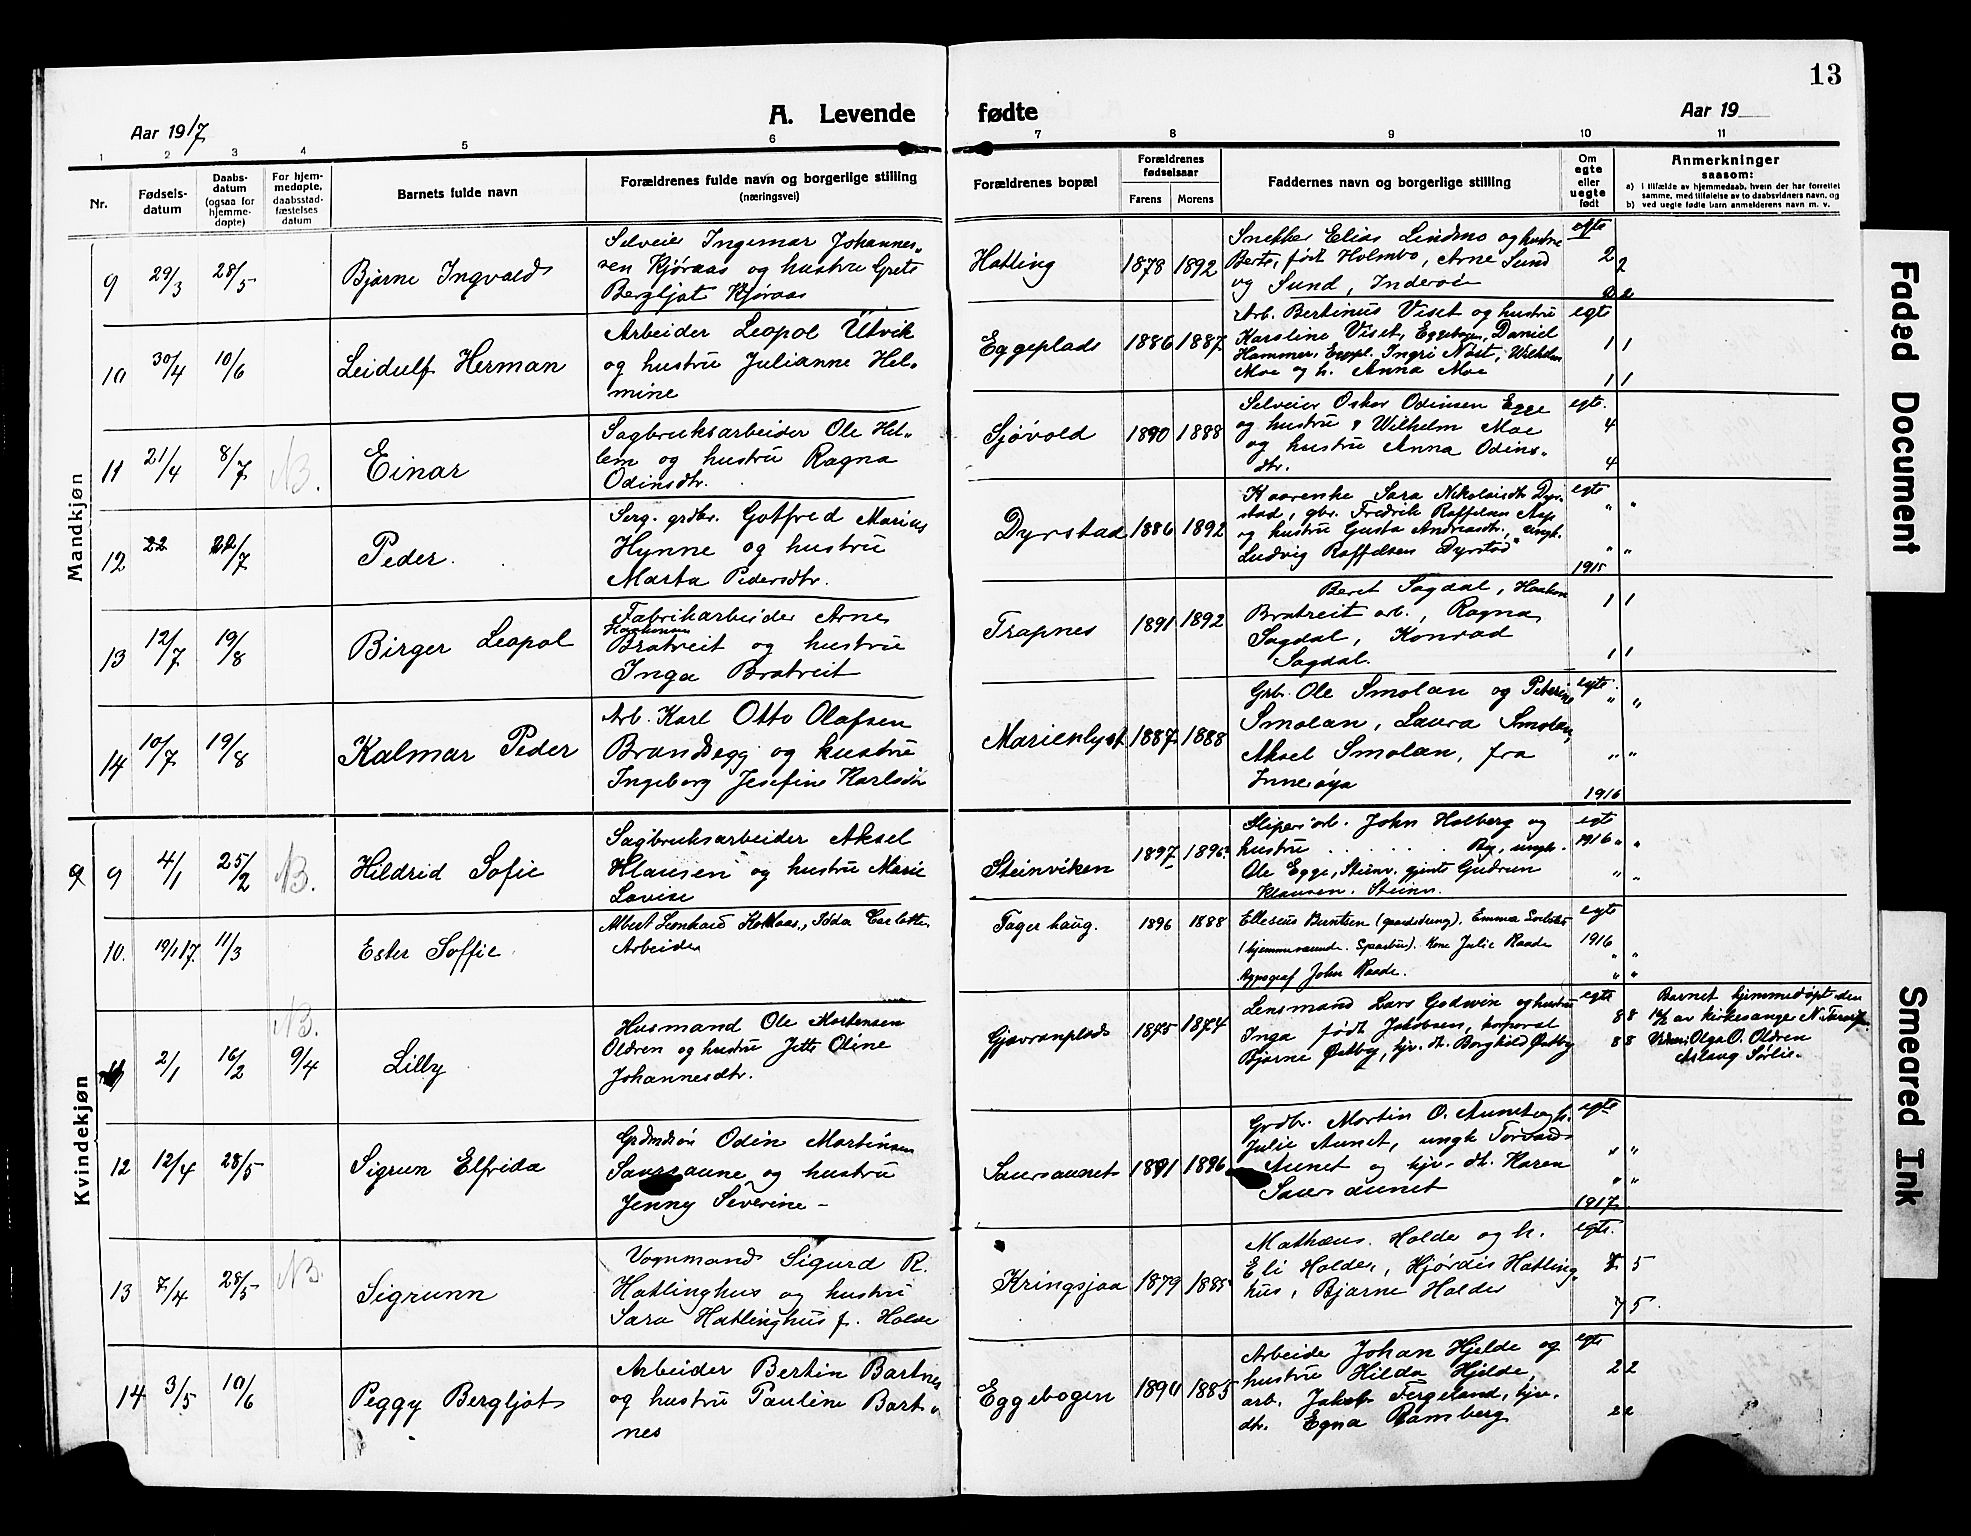 13
A. Levende fødte
Aar 1917
Aar 19
1 2 3 4 5 6 7 8 9 10 11
Nr.
Fødsels-
datum
Daabs-
datum
(ogsaa for
hjemme-
døpte)
For hjem-
medøpte,
daabsstad-
fæstelses
datum
Barnets fulde navn
Forældrenes fulde navn og borgerlige stilling
(næringsvei)
Forældrenes bopæl
Forældrenes
fødselsaar
Farens Morens
Faddernes navn og borgerlige stilling
Om
egte
eller
uegte
født
Anmerkninger
saasom:
a) i tilfælde av hjemmedaab, hvem der har forrettet
samme, med tilføielse av to daabsvidners navn, og
b) ved uegte fødte barn anmelderens navn m. v.
Mandkjøn
9 29/3 28/5 Bjarne Ingvald
Selveier Ingemar Johannes-
sen Kjøraas og hustru Grete
Bergljot Kjøraas
Hatling 1878 1892
Snekker Elias Lindmo og hustru
Berte, født Holmbo, Arne Sund
og Sund, Inderøi
egte
2 2
2 2
10 30/4 10/6 Leidulf Herman
Arbeider Leopol Utvik
og hustru Julianne Hel-
mine
Eggeplads 1886 1887
Arb. Bertinus Viset og hustru
Karoline Viset, Eggebogen, Daniel
Hammer, Eggepl. Ingri Nøst, Wilhelm
Moe og h. Anna Moe
egte
1 1
1 1
11 21/4 8/7 NB. Einar
Sagbruksarbeider Ole Hel-
lem og hustru Ragna
Odinsdtr.
Sjøvold 1890 1888
Selveier Oskar Odinsen Egge
og hustru, Wilhelm Moe
og hustru Anna Odins-
dtr.
egte.
4
4
12 22 22/7 Peder.
Serg. grdbr. Gotfred Marius
Hynne og hustru
Marta Pedersdtr.
Dyrstad 1886 1892
Kaarenke Sara Nikolaisdtr Dyr-
stad, gbr. Fredrik Roffelsen Aap
og hustru Gusta Andreasdtr., ungk.
Ludvig Roffelsen Dyrstad
egte
" "
" "
1915
13 12/7 19/8 Birger Leopol
Fabrikarbeider Arne
Haakonsen
Bratreit og hustru
Inga Bratreit
Trapnes 1891 1892
Beret Sagdal, Haakon
Bratreit arb., Ragna
Sagdal, Konrad
Sagdal.
1 1
1 1
14 10/7 19/8 Kalmar Peder
Arb. Karl Otto Olafsen
Brandsegg og hustru
Ingeborg Josefine Karlsdtr
Marienlyst 1887 1888
Grb. Ole Smolan og Peterine
Smolan, Laura Smolan,
Aksel Smolan, fra
Inderøya
egte
" "
" "
1916
Kvindekjøn
9 9 4/1 25/2 NB. Hildrid Sofie
Sagbruksarbeider Aksel
Klausen og hustru Marie
Lovise
Steinviken 1897 1896
Sliperiarb. John Holberg og
hustru . . . . . . By, ungk.
Ole Egge, Steinv. pjente Gudrun
Klausen. Steinv.
egt
1916 " "
" "
10. 19/1 17. 11/3 Ester Soffie
Arbeider
Tagerhaug. 1896 1888
Elleseus Berntsen (gaardsdreng). Emma
Kone Julie Raade
typograf John Raade.
egte
1916
" "
" "
11 2/1 16/2 NB. 9/4 Lilly
Husmand Ole Mortensen
Oldren og hustru Jette Oline
Johannesdtr.
Gjævranplads 1875 1874
Lensmand Lars Godwin og hustru
Inga født Jakobsen, korporal
Bjarne Østby, hjv. dt. Borghild Østby
egte
8 8
8 8
Barnet hjemmedøpt den
16/2 av kirkesanger
Vidner: Olga O. Oldren
Aslaug Sølie.
12 12/4 28/5 Sigrun Elfrida
Grdmdsøn Odin Martinsen
Saursaune og hustru
Jenny Severine -
Saursaunet 1891 1896
Grdbr. Martin O. Aunet og h.
Julie Aunet, ungk Torvald
Aunet og hjv. dt. Karen
Saursaunet
egte
" "
" "
1917
13 7/4 28/5 NB. Sigrunn
Vognmand Sigurd R.
Hatlinghus og hustru
Sara Hatlinghus f. Holde
Kringsjaa 1879 1885
Mathæus Holde og h.
Eli Holder, Hjørdis Hatling-
hus, Bjarne Holder
egte.
7 5
7 5
14 3/5 10/6 Peggy Bergljot
Arbeider Bertin Bartnes
og hustru Pauline Bart-
nes
Eggebogen 1890 1885
Arbeide Johan Hjelde og
hustru Hilda Hjelde,
arb. Jakob Fergeland, hjv.
dtr. Egna Ramberg
egte
2 2
2 2
Faded Document
Smeared Ink